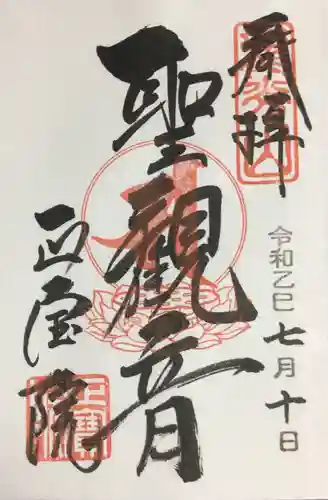 奉拝
龍光山
令和乙巳七月十日
聖観音
正宝院